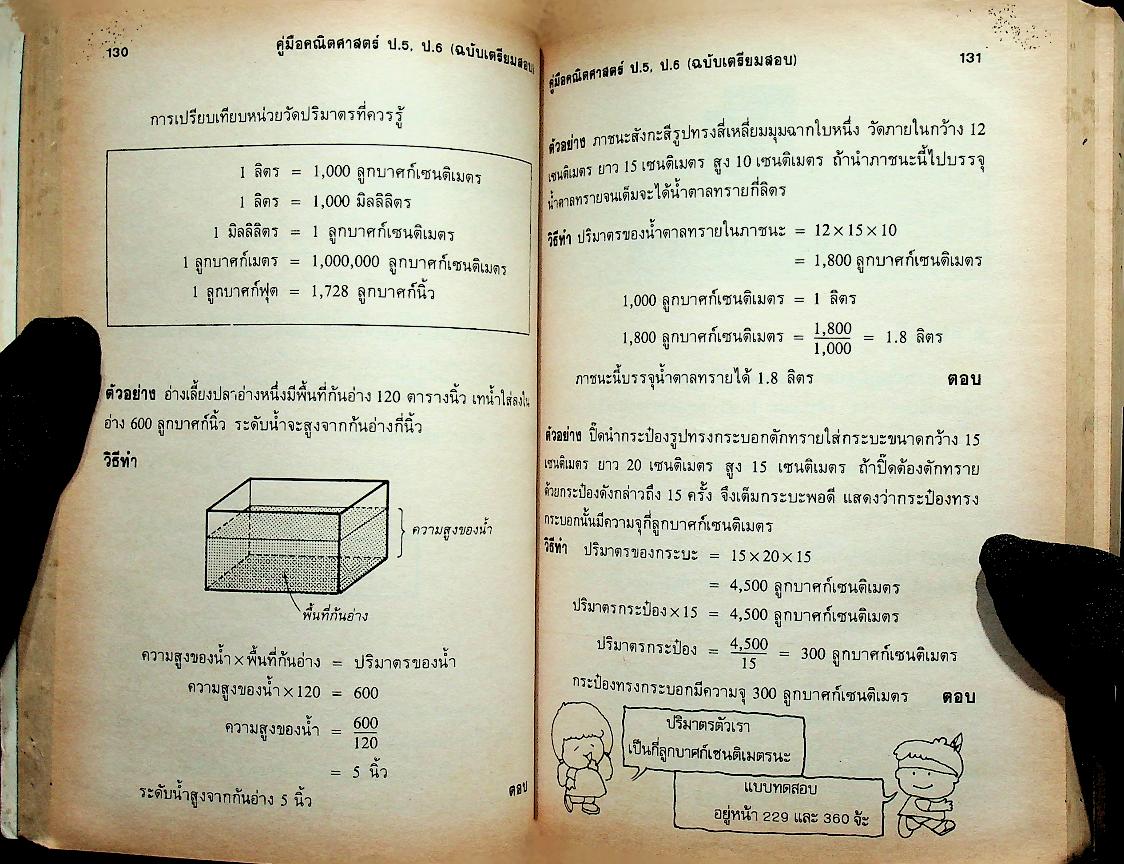 130
คู่มือคณิตศาสตร์ ป.5, ป.6 (ฉบับเตรียมสอบ)
การเปรียบเทียบหน่วยวัดปริมาตรที่ควรรู้
1 ลิตร = 1,000 ลูกบาศก์เซนติเมตร
1 ลิตร = 1,000 มิลลิลิตร
1 มิลลิลิตร = 1 ลูกบาศก์เซนติเมตร
1 ลูกบาศก์เมตร = 1,000,000 ลูกบาศก์เซนติเมตร
1 ลูกบาศก์ฟุต = 1,728 ลูกบาศก์นิ้ว
ตัวอย่าง อ่างเลี้ยงปลาอ่างหนึ่งมีพื้นที่ก้นอ่าง 120 ตารางนิ้ว เทน้ำใส่ลงใน
อ่าง 600 ลูกบาศก์นิ้ว ระดับน้ำจะสูงจากก้นอ่างกี่นิ้ว
วิธีทำ
ความสูงของน้ำ
พื้นที่ก้นอ่าง
ความสูงของน้ำ × พื้นที่ก้นอ่าง = ปริมาตรของน้ำ
ความสูงของน้ำ × 120 = 600
ความสูงของน้ำ = 600/120
= 5 นิ้ว
ระดับน้ำสูงจากก้นอ่าง 5 นิ้ว ตอบ
คู่มือคณิตศาสตร์ ป.5, ป.6 (ฉบับเตรียมสอบ)
131
ตัวอย่าง ภาชนะสังกะสีรูปทรงสี่เหลี่ยมมุมฉากใบหนึ่ง วัดภายในกว้าง 12
เซนติเมตร ยาว 15 เซนติเมตร สูง 10 เซนติเมตร ถ้านำภาชนะนี้ไปบรรจุ
น้ำตาลทรายจนเต็มจะได้น้ำตาลทรายกี่ลิตร
วิธีทำ ปริมาตรของน้ำตาลทรายในภาชนะ = 12 × 15 × 10
= 1,800 ลูกบาศก์เซนติเมตร
1,000 ลูกบาศก์เซนติเมตร = 1 ลิตร
1,800 ลูกบาศก์เซนติเมตร = 1,800/1,000 = 1.8 ลิตร
ภาชนะนี้บรรจุน้ำตาลทรายได้ 1.8 ลิตร ตอบ
ตัวอย่าง ปิ๊ดนำกระป๋องรูปทรงกระบอกตักทรายใส่กระบะขนาดกว้าง 15
เซนติเมตร ยาว 20 เซนติเมตร สูง 15 เซนติเมตร ถ้าปิ๊ดต้องตักทราย
ด้วยกระป๋องดังกล่าวถึง 15 ครั้ง จึงเต็มกระบะพอดี แสดงว่ากระป๋องทรง
กระบอกนั้นมีความจุกี่ลูกบาศก์เซนติเมตร
วิธีทำ ปริมาตรของกระบะ = 15 × 20 × 15
= 4,500 ลูกบาศก์เซนติเมตร
ปริมาตรกระป๋อง × 15 = 4,500 ลูกบาศก์เซนติเมตร
ปริมาตรกระป๋อง = 4,500/15 = 300 ลูกบาศก์เซนติเมตร
กระป๋องทรงกระบอกมีความจุ 300 ลูกบาศก์เซนติเมตร ตอบ
ปริมาตรตัวเรา
เป็นกี่ลูกบาศก์เซนติเมตรนะ
แบบทดสอบ
อยู่หน้า 229 และ 360 จ้ะ